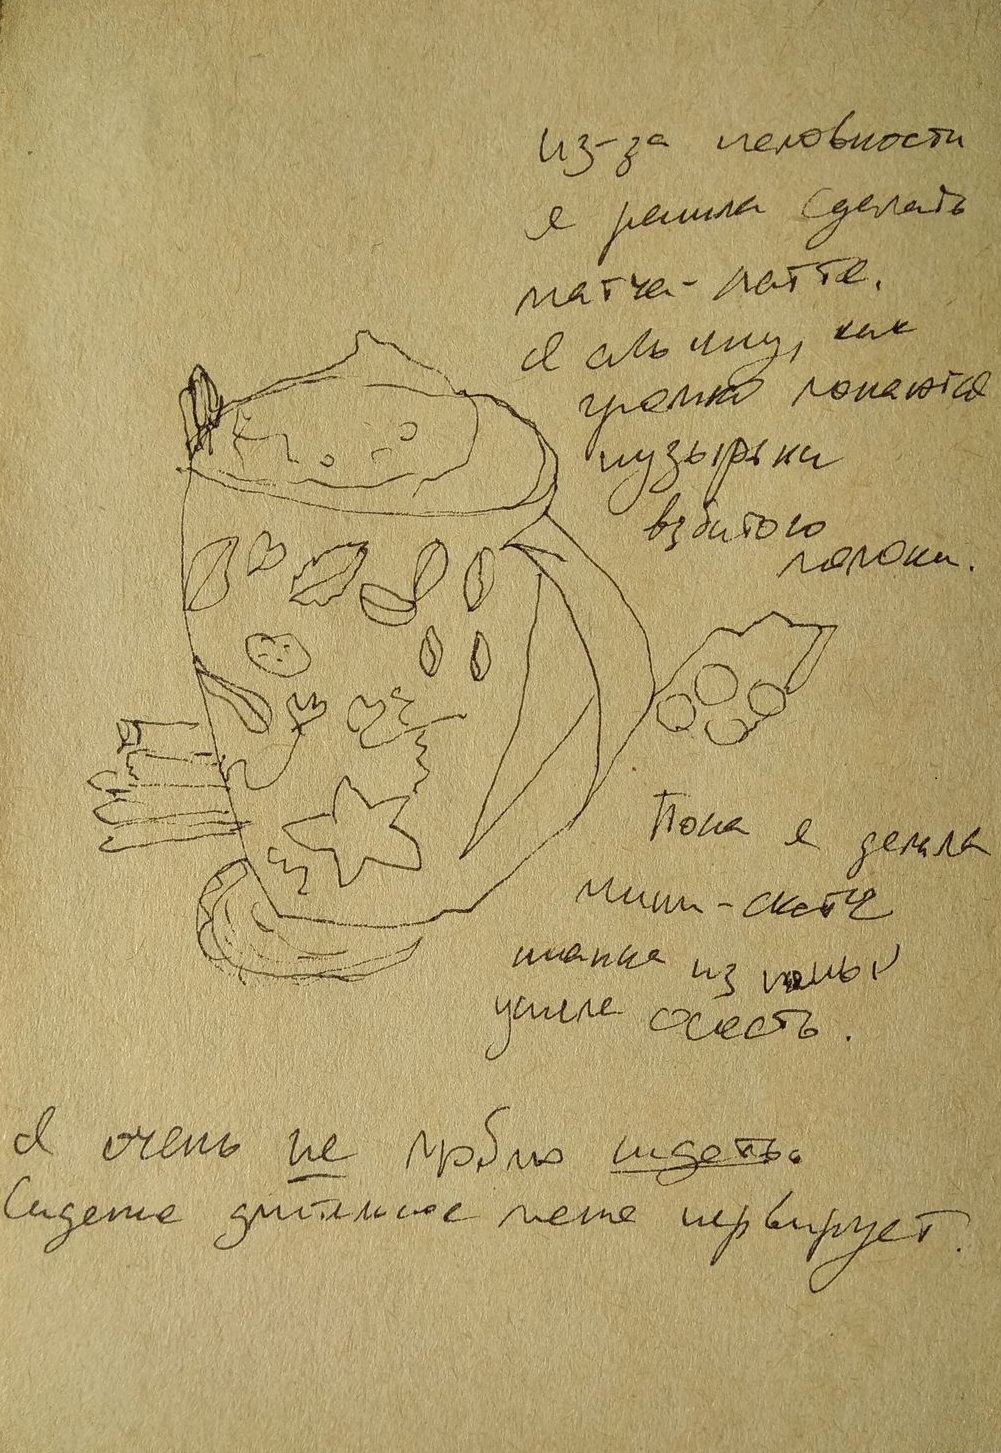 Из-за неловкости
я решила сделать
матча-латте.
Я слышу, как
громко лопаются
пузырьки
взбитого
молока.
Пока я делала
мини-скетч
шапка из пены
успела осесть.
Я очень не люблю сидеть.
Сидение длительное меня нервирует.